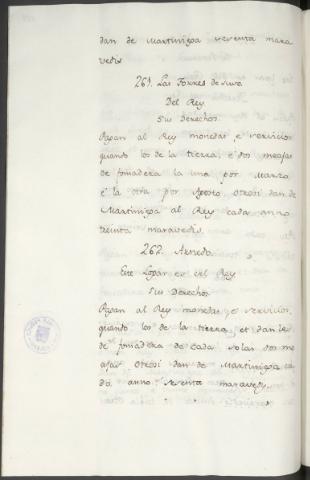 dan de Martiniega sesenta mara
vedis
261. Las Torres de suso
Del Rey
Sus Derechos.
Pagan al Rey monedas, e servicios
quando los de la tierra, e dos meajas
de fonsadera la una por Marzo
e la otra por Agosto otrosi dan de
Martiniega al Rey cada anno
treinta maravedis.
262. Arnedo.
Este Logar es del Rey
Sus Derechos
Pagan al Rey monedas, e servicios,
quando los de la tierra, et danles
de fonsadera de cada solar dos me
ajas otrosi dan de Martiniega ca
da anno sesenta maravedis.